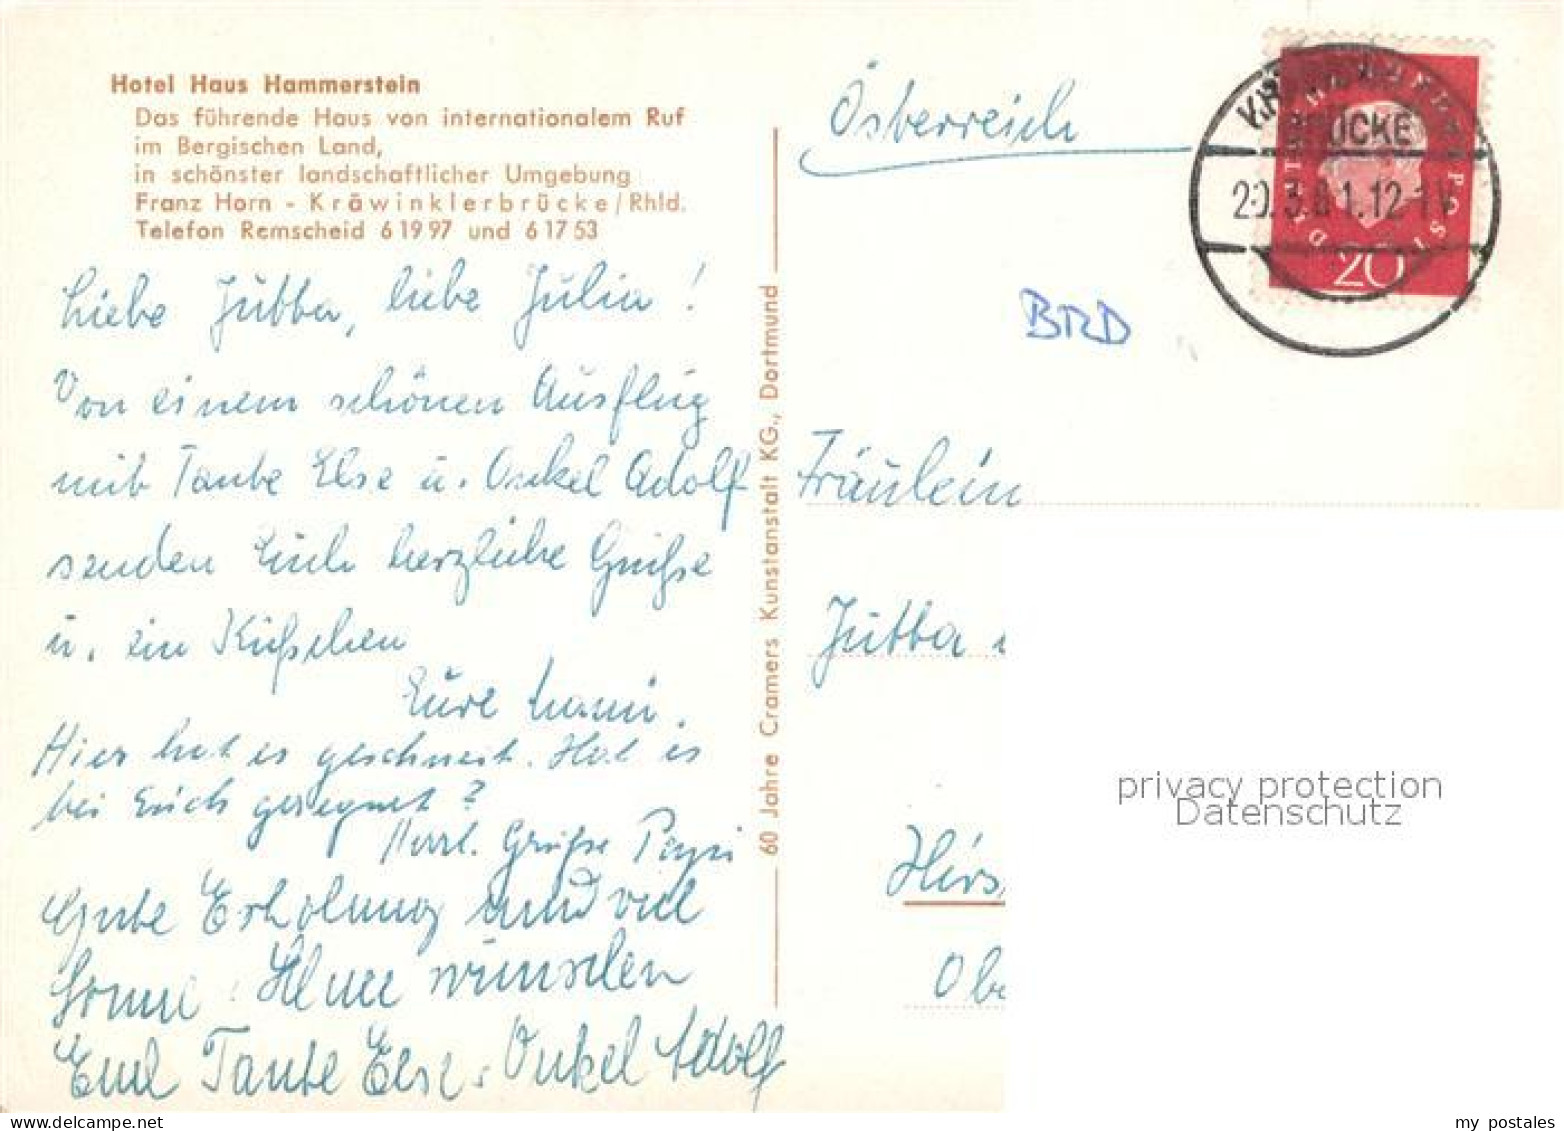 Hotel Haus Hammerstein
Das führende Haus von internationalem Ruf
im Bergischen Land,
in schönster landschaftlicher Umgebung
Franz Horn - Kräwinklerbrücke/Rhld.
Telefon Remscheid 6 19 97 und 6 17 53
Liebe Jutta, liebe Julia!
Von einem schönen Ausflug
mit Tante Else u. Onkel Adolf
senden Euch herzliche Grüße
u. ein Küßchen
Eure Mami.
Hier hat es geschneit. Hat es
bei Euch geregnet?
Herzl. Grüße Papi
Gute Erholung und viel
Sonne wünschen
Euch Tante Else, Onkel Adolf
60 Jahre Cramers Kunstanstalt KG., Dortmund
Österreich
BRÜCKE
20.3.61.12-1V
DEUTSCHE BUNDESPOST
20
BRD
Fräulein
Jutta
Hirs
Obe
privacy protection
Datenschutz
my postales